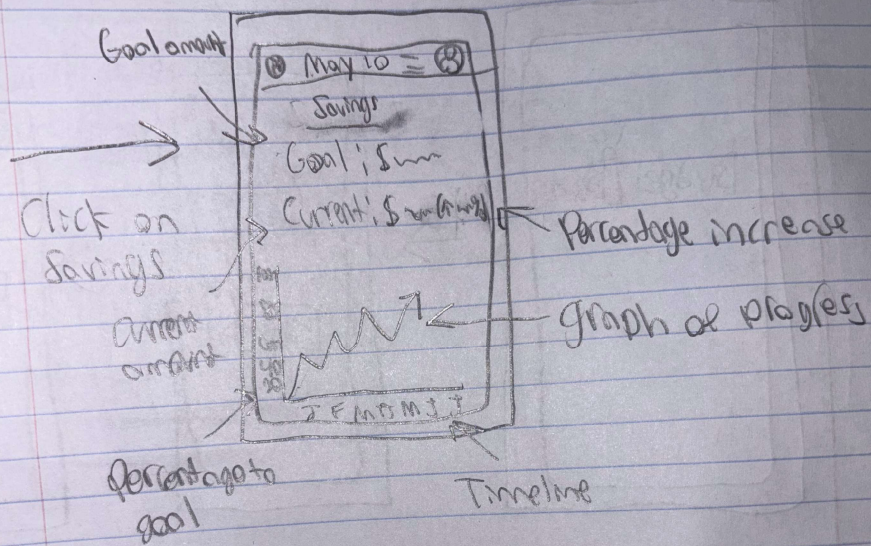 Goal amount
May 10
Savings
Goal: $
Current: $
Click on
Savings
Percentage increase
Current
amount
graph of progress
J F M A M J J
Percentage to
goal
Timeline